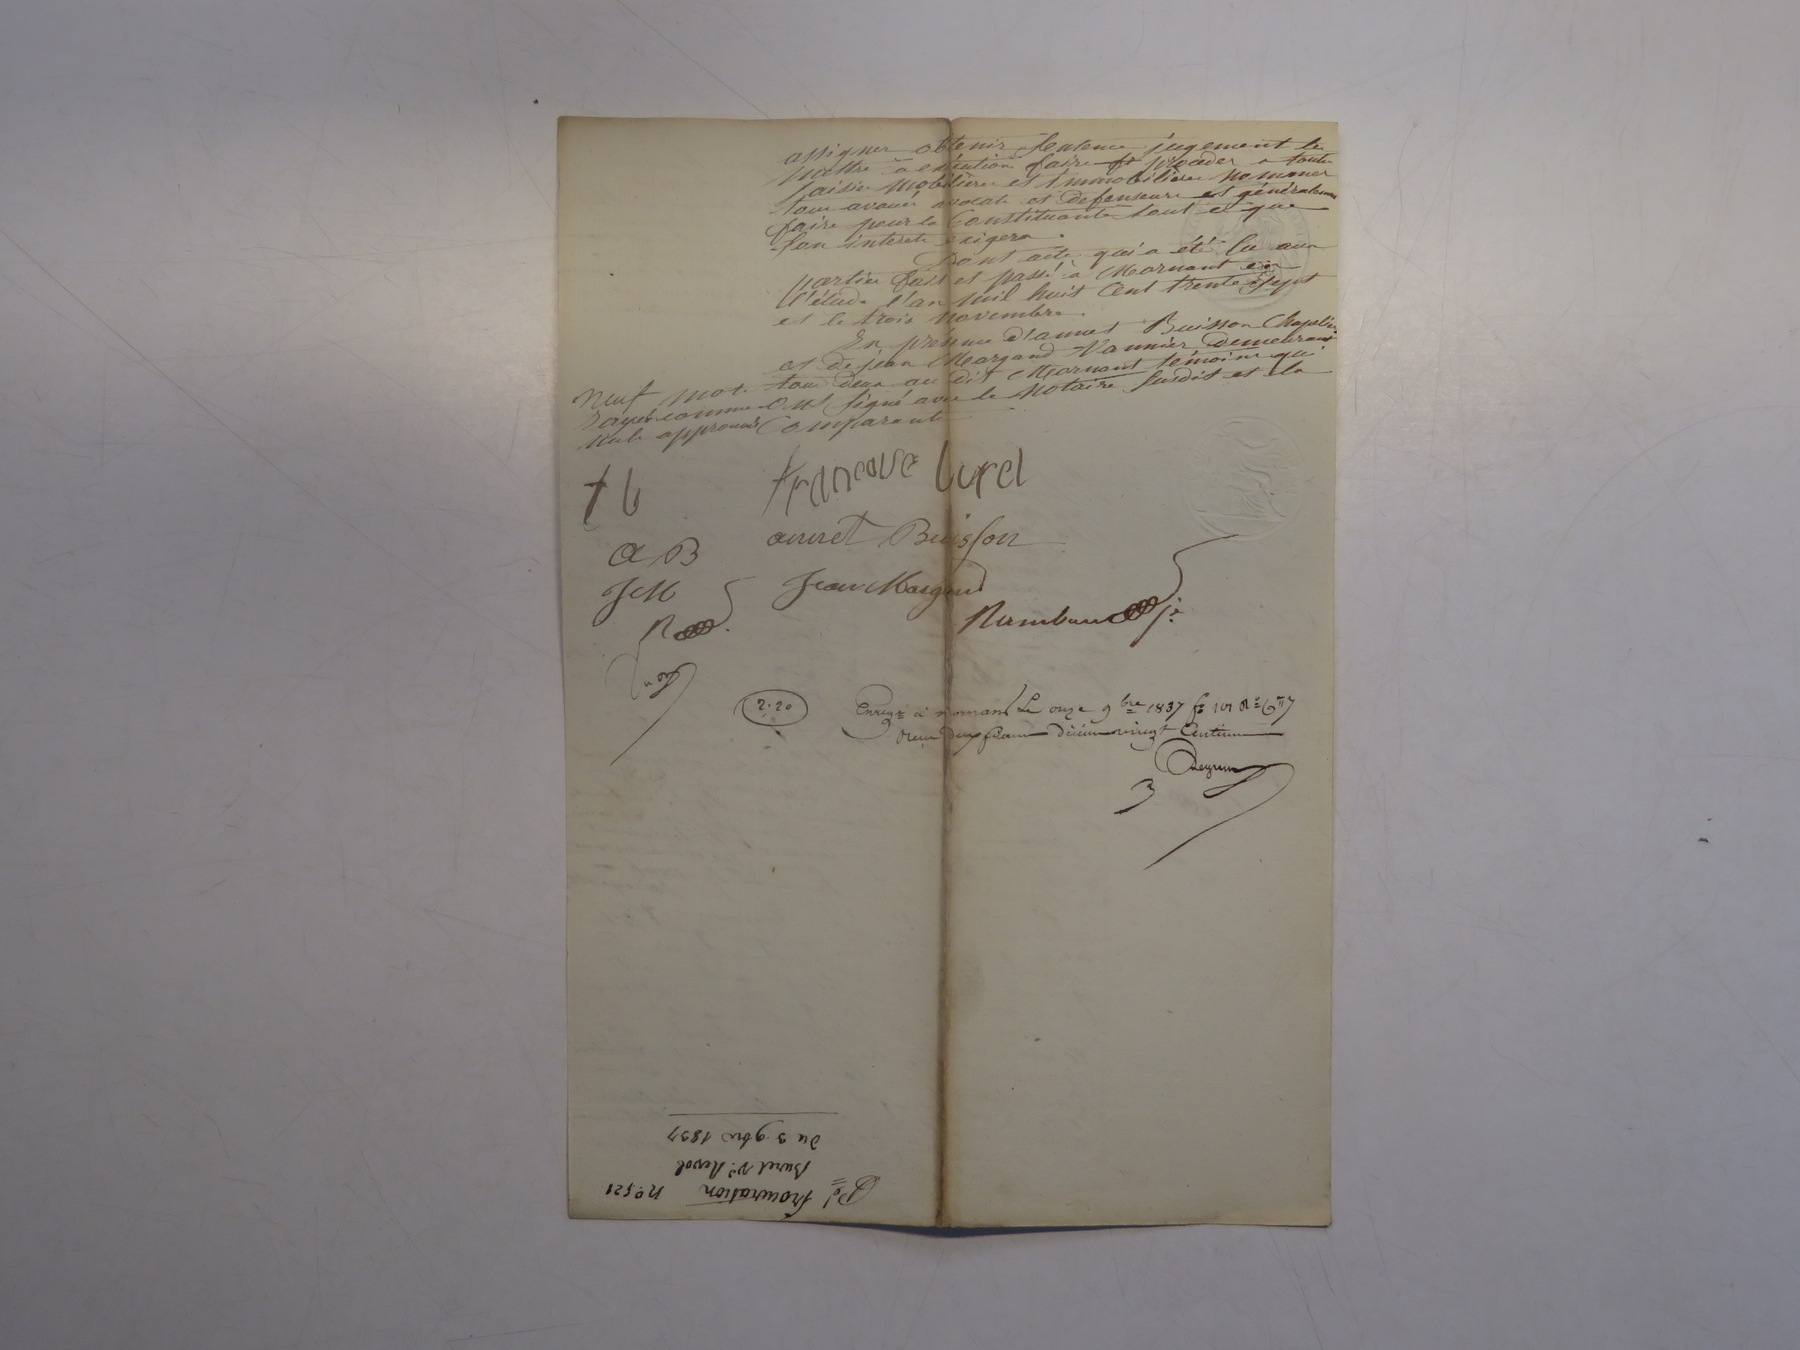 assigner obtenir sentence jugement le
mettre à exécution faire procéder a toute
saisie mobilière et immobilière nommer
tous avoués avocats et defenseurs et généralement
faire pour la Constituante tout ce que
son intérêt exigera.
Dont acte qui a été lu aux
parties fait et passé à Mornant en
l'étude l'an mil huit Cent trente sept
et le trois novembre.
En présence d'annet Buisson Chapelier
et de jean Margand Vannier demeurant
tous deux au dit Mornant témoins qui
ont signé avec le Notaire susdit et la
Comparante
Neuf mots
rayés comme
nuls approuvés
francoise burel
f b
annet Buisson
A B
Jean Margand
J M
Rambaud jne
R
2.20
Enregé à mornant Le onze 9bre 1837 fo 101
reçu deux francs dixième vingt Centimes
Pel Procuration No 521
Burel Ve Revol
Du 3 9bre 1837